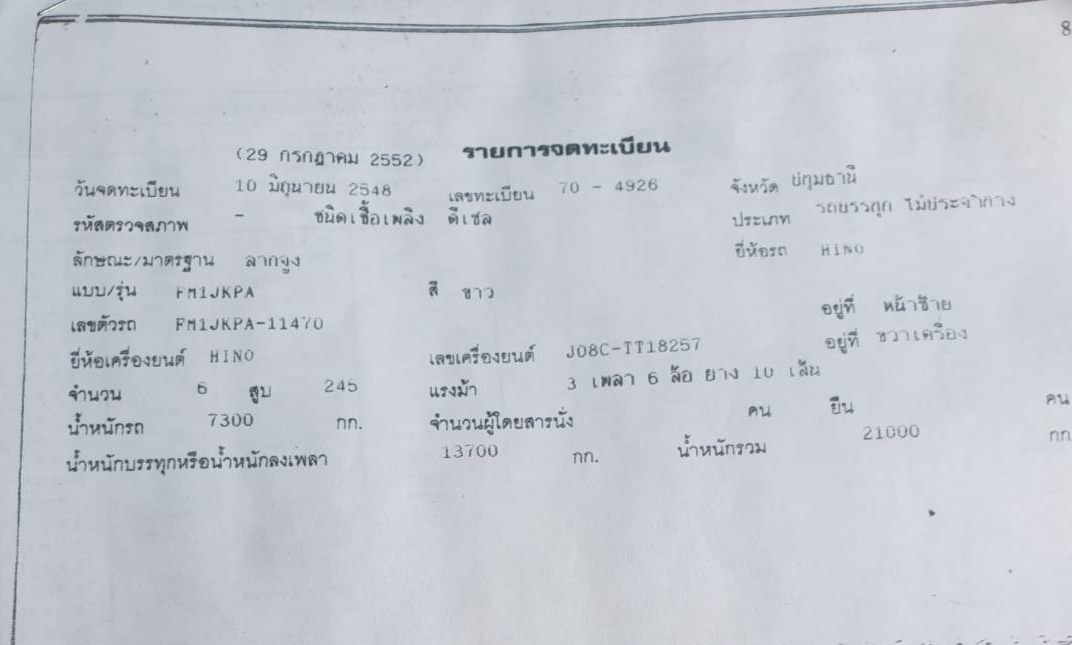 8
(29 กรกฎาคม 2552) รายการจดทะเบียน
วันจดทะเบียน 10 มิถุนายน 2548 เลขทะเบียน 70 - 4926 จังหวัด ปทุมธานี
รหัสตรวจสภาพ - ชนิดเชื้อเพลิง ดีเซล ประเภท รถบรรทุก ไม่ประจำทาง
ลักษณะ/มาตรฐาน ลากจูง ยี่ห้อรถ HINO
แบบ/รุ่น FM1JKPA สี ขาว
เลขตัวรถ FM1JKPA-11470 อยู่ที่ หน้าซ้าย
ยี่ห้อเครื่องยนต์ HINO เลขเครื่องยนต์ J08C-TT18257 อยู่ที่ ขวาเครื่อง
จำนวน 6 สูบ 245 แรงม้า 3 เพลา 6 ล้อ ยาง 10 เส้น
น้ำหนักรถ 7300 กก. จำนวนผู้โดยสารนั่ง คน ยืน คน
น้ำหนักบรรทุกหรือน้ำหนักลงเพลา 13700 กก. น้ำหนักรวม 21000 กก